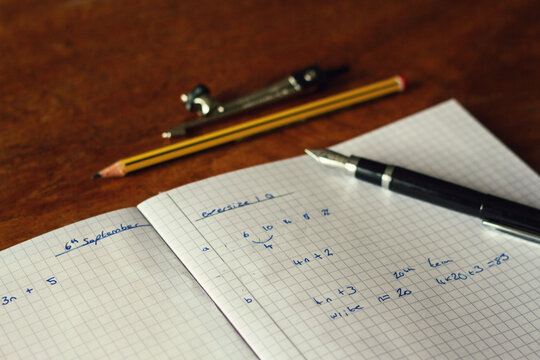 6th September
3n + 5
Exersize 1 Q
a 6 10
4
4n + 2
b 4n + 3 20th term
n = 20 4x20+3 = 83